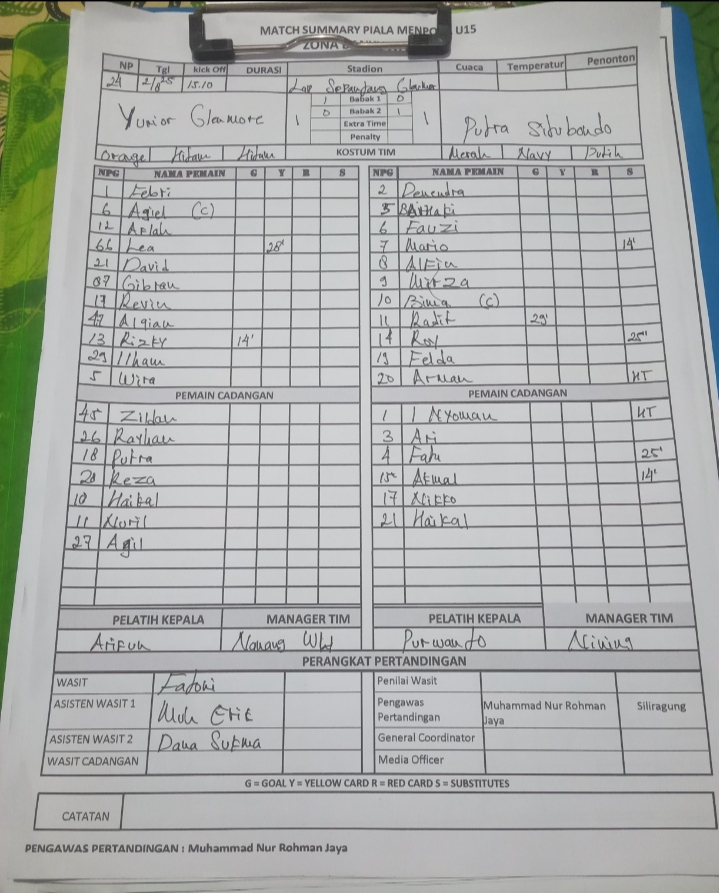 MATCH SUMMARY PIALA MENPO U15
ZONA
NP Tgl kick Off DURASI Stadion Cuaca Temperatur Penonton
24 2/8'25 15.10
1 Babak 1 0
Yunior Glenmore 1 0 Babak 2 1 1 Putra Situbondo
Extra Time
Penalty
Orange Hitam Hitam KOSTUM TIM Merah Navy Putih
NPG NAMA PEMAIN G Y R S NPG NAMA PEMAIN G Y R S
1 Febri 2 Denendra
6 Agiel (C) 5
12 Aflah 6 Fauzi
66 Lea 28' 7 Mario 14'
21 David 8 Alfin
87 Gibran 9 Mirza
17 Revin 10 (C)
47 11 Radit 29'
13 Rizky 14' 14 Roy 25'
29 Ilham 19 Felda
5 Wira 20 Arman HT
PEMAIN CADANGAN PEMAIN CADANGAN
45 Zildan 1 I Nyoman HT
26 Rayhan 3 Ari
18 Putra 4 25'
20 Reza 15 Akmal 14'
10 Haikal 17 Nikko
11 Nuril 21 Haikal
27 Agil
PELATIH KEPALA MANAGER TIM PELATIH KEPALA MANAGER TIM
Nanang Purwanto Nining
PERANGKAT PERTANDINGAN
WASIT Fatoni Penilai Wasit
ASISTEN WASIT 1 Moh Erik Pengawas Pertandingan Muhammad Nur Rohman Jaya Siliragung
ASISTEN WASIT 2 Dana Sukma General Coordinator
WASIT CADANGAN Media Officer
G = GOAL Y = YELLOW CARD R = RED CARD S = SUBSTITUTES
CATATAN
PENGAWAS PERTANDINGAN : Muhammad Nur Rohman Jaya